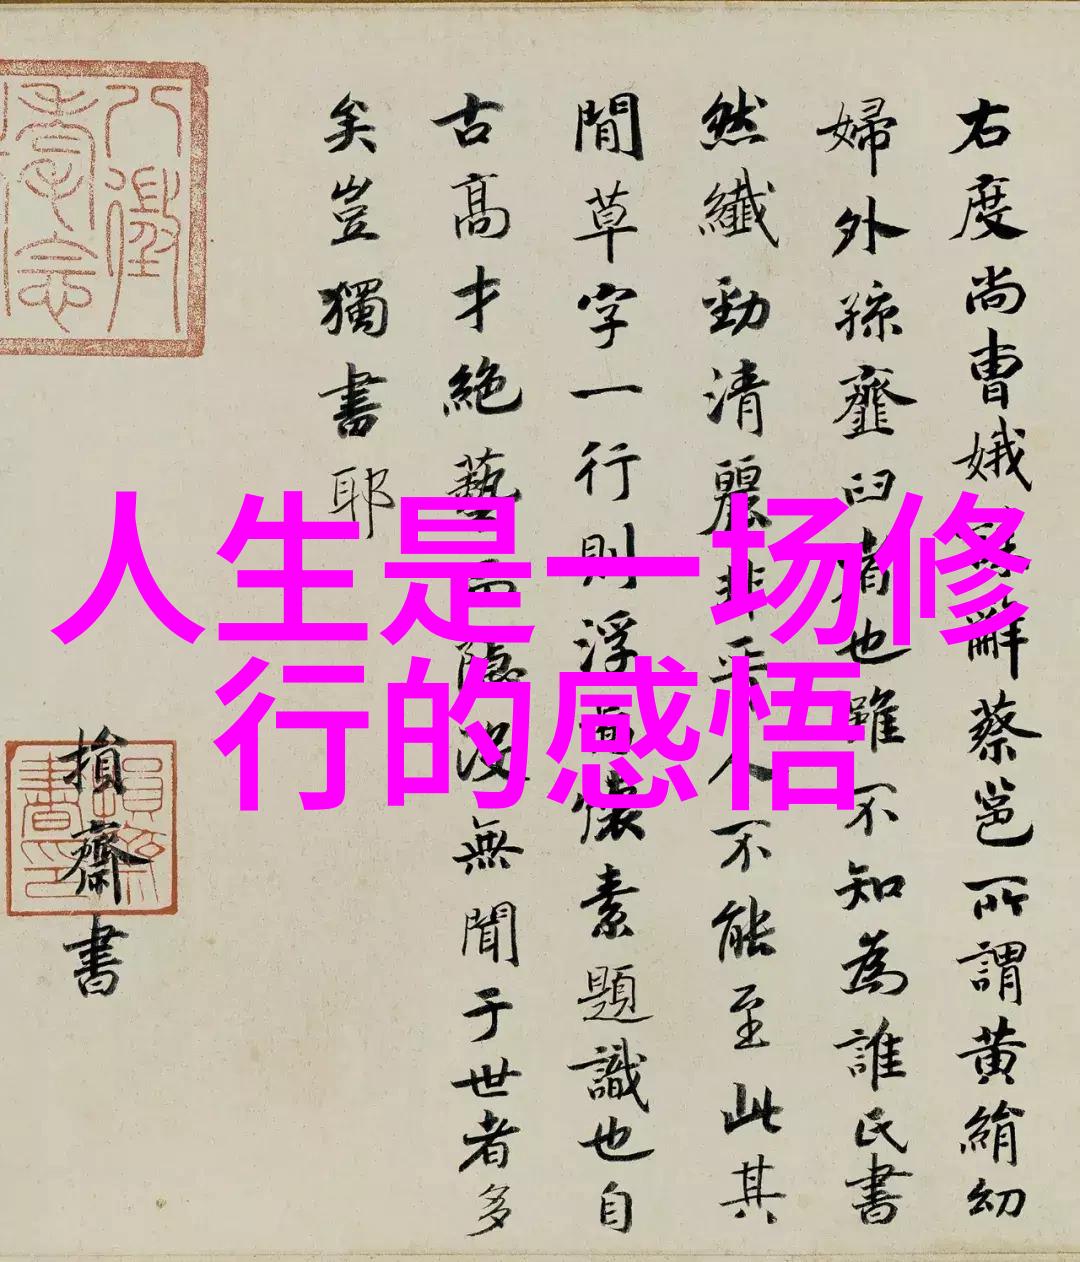 人生是一场修
行的感悟
右度尚曹娥誄辭蔡邕所謂黃絹幼
婦外孫虀臼者也雖不知為誰氏書
然纖勁清麗非晉人不能至此其
間草字一行則浮屠懷素題識也自
古高才絕藝而隱沒無聞于世者多
矣豈獨書耶
損齋書
八徵
耄念